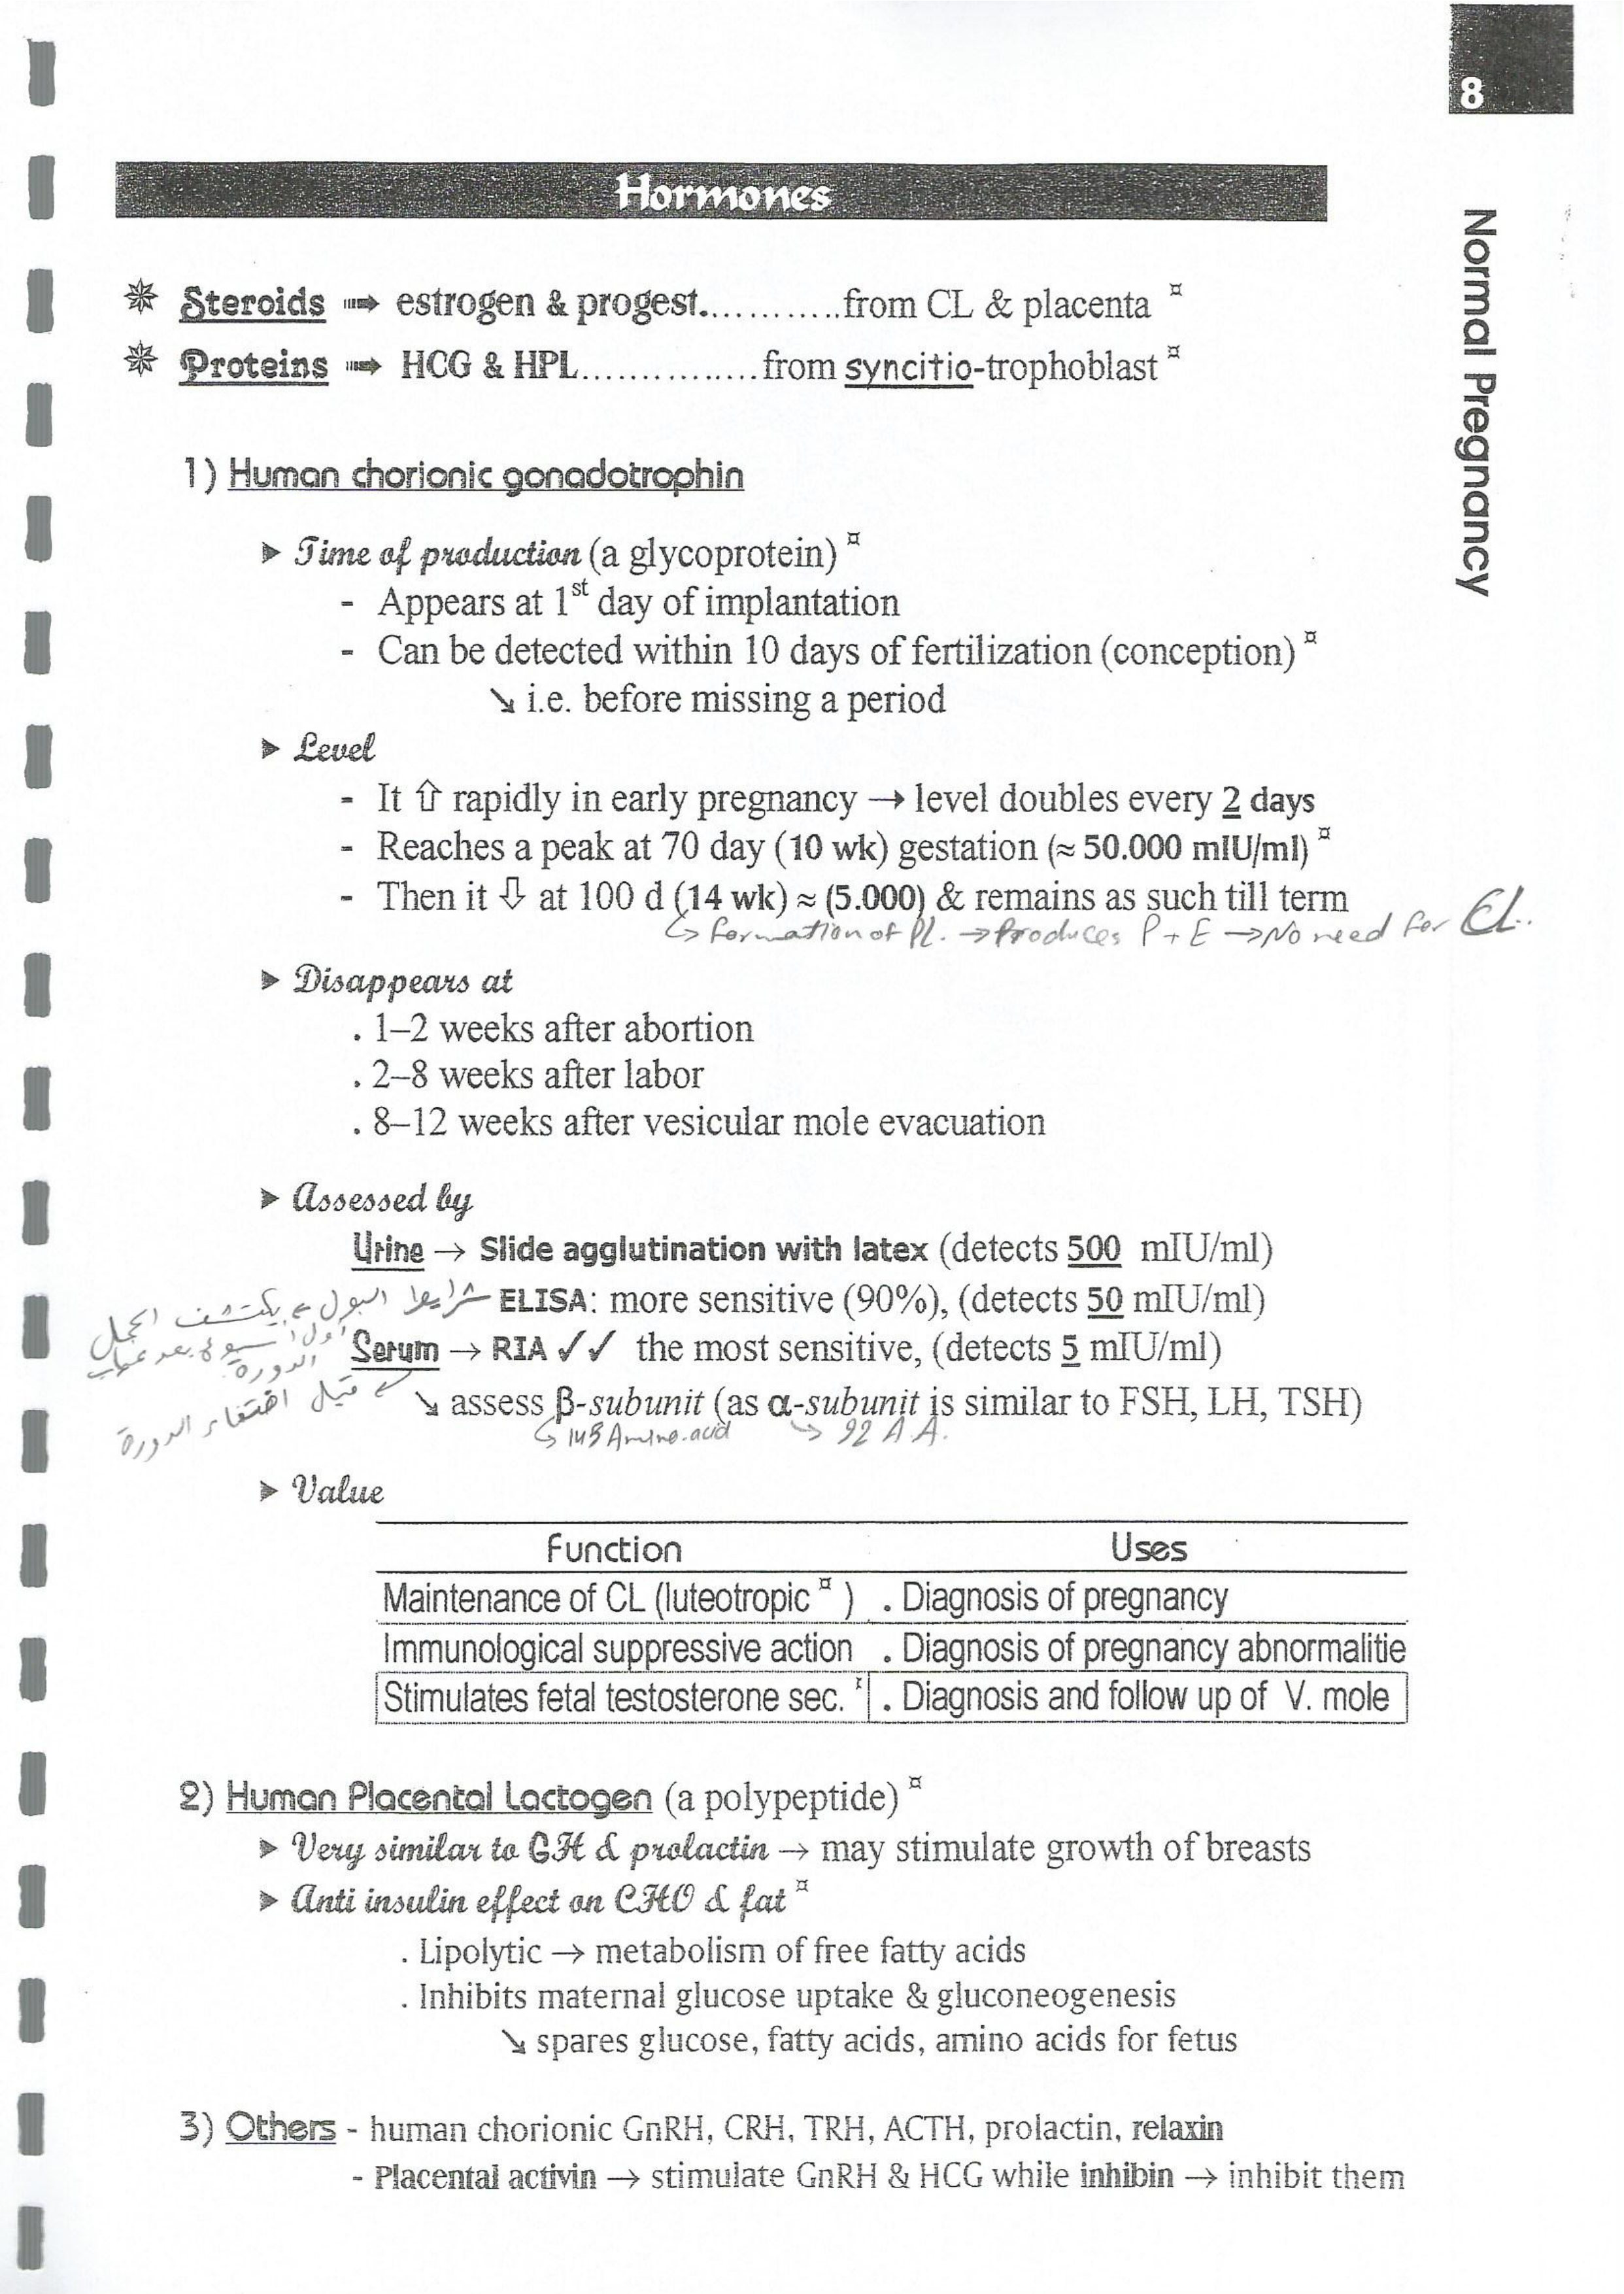 8
Normal Pregnancy
Hormones
✵ Steroids ➠ estrogen & progest............from CL & placenta ¤
✵ Proteins ➠ HCG & HPL...............from syncitio-trophoblast ¤
1) Human chorionic gonadotrophin
➤ Time of production (a glycoprotein) ¤
- Appears at 1st day of implantation
- Can be detected within 10 days of fertilization (conception) ¤
↘ i.e. before missing a period
➤ Level
- It ⇧ rapidly in early pregnancy → level doubles every 2 days
- Reaches a peak at 70 day (10 wk) gestation (≈ 50.000 mIU/ml) ¤
- Then it ⇩ at 100 d (14 wk) ≈ (5.000) & remains as such till term
↪ formation of Pl. → Produces P + E → No need for CL..
➤ Disappears at
. 1–2 weeks after abortion
. 2–8 weeks after labor
. 8–12 weeks after vesicular mole evacuation
➤ Assessed by
Urine → Slide agglutination with latex (detects 500 mIU/ml)
شرايط البول ← يكتشف الحمل
ELISA: more sensitive (90%), (detects 50 mIU/ml)
أول أسبوع بعد غياب
الدورة
Serum → RIA ✓✓ the most sensitive, (detects 5 mIU/ml)
قبل اختفاء الدورة
↘ assess β-subunit (as α-subunit is similar to FSH, LH, TSH)
↪ 145 Amino.acid ↪ 92 A.A.
➤ Value
Function Uses
Maintenance of CL (luteotropic ¤ ) . Diagnosis of pregnancy
Immunological suppressive action . Diagnosis of pregnancy abnormalitie
Stimulates fetal testosterone sec. ¤ . Diagnosis and follow up of V. mole
2) Human Placental Lactogen (a polypeptide) ¤
➤ Very similar to GH & prolactin → may stimulate growth of breasts
➤ Anti insulin effect on CHO & fat ¤
. Lipolytic → metabolism of free fatty acids
. Inhibits maternal glucose uptake & gluconeogenesis
↘ spares glucose, fatty acids, amino acids for fetus
3) Others - human chorionic GnRH, CRH, TRH, ACTH, prolactin, relaxin
- Placental activin → stimulate GnRH & HCG while inhibin → inhibit them